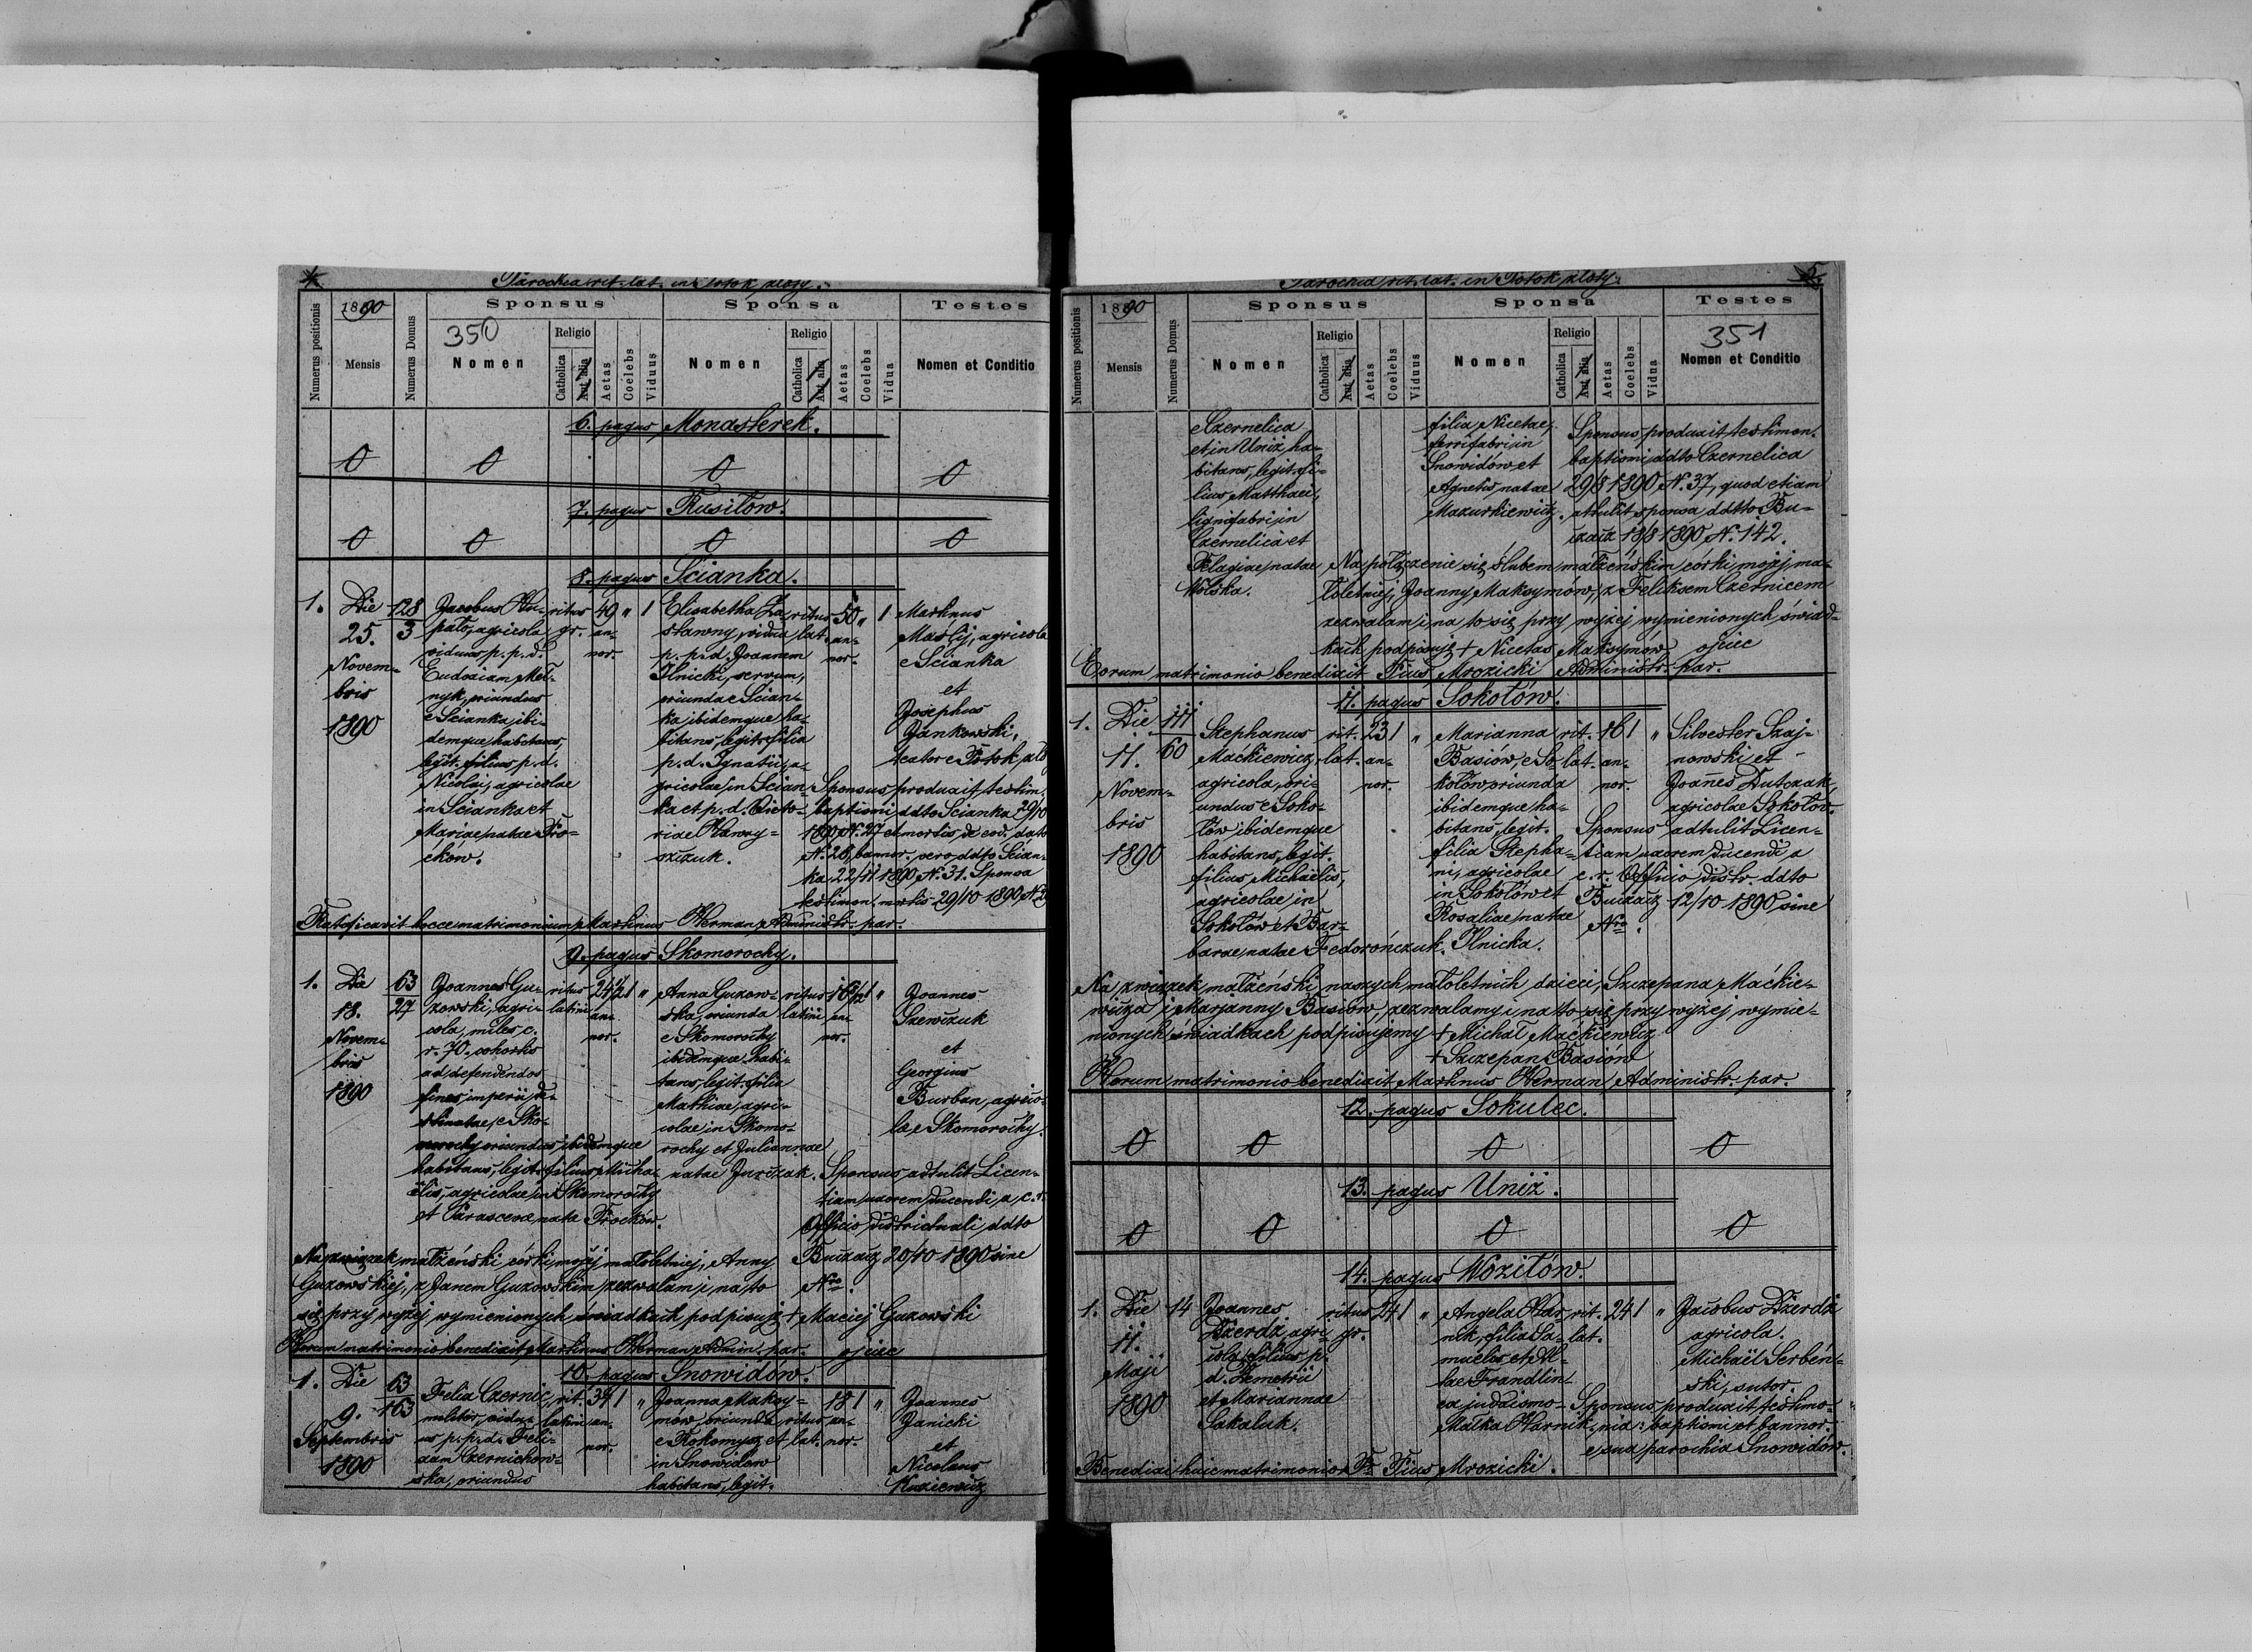 4.
Parochia rit. lat. in Potok złoty.
Numerus positionis
1890
Mensis
Numerus Domus
Sponsus
350
Nomen
Religio
Catholica
Aut alia
Aetas
Coelebs
Viduus
Sponsa
Nomen
Religio
Catholica
Aut alia
Aetas
Coelebs
Vidua
Testes
Nomen et Conditio
6. pagus Monasterek.
0 0 0 0
7. pagus Rusiłow.
0 0 0 0
8. pagus Scianka.
1.
Die
25.
Novem-
bris
1890
128
3
Jacobus
pato, agricola
viduus p. p. d.
Eudoxiam Mel-
nyk, oriundus
e Scianka, ibi-
demque habitans,
legit. filius p. d.
Nicolai, agricolae
in Scianka et
Mariae natae Tro-
ćków.
ritus
gr.
49
an-
nor.
"
1
Elisabetha Za-
sławny, vidua
p. p. d. Joannem
Ilnicki, servum,
oriunda e Scian-
ka ibidemque ha-
bitans, legit. filia
p. d. Ignatii, a-
gricolae in Scian-
ka et p. d. Victo-
riae Hawry-
szczuk.
ritus
lat.
50
an-
nor.
"
1
Martinus
Maslij, agricola
e Scianka
et
Josephus
Jankowski,
Potok
Sponsus produxit testim.
baptismi ddto Scianka 29/10
1890 N. 27 et mortis de eod. dato
N. 28, bannor. vero ddto Scian-
ka 22/11 1890 N. 31. Sponsa
testimon. mortis 29/10 1890 N.
Ratificavit hocce matrimonium Martinus Herman Administr. par.
9. pagus Skomorochy.
1.
Die
18.
Novem-
bris
1890
63
27
Joannes Gu-
zowski, agri-
cola, miles c.
r. 70. cohortis
ad defendendos
fines imperii de-
stinatae, e Sko-
morochy oriundus ibidemque
habitans, legit. filius Micha-
ëlis, agricolae in Skomorochy
et Parascevae nata Troćków.
ritus
latini
24½
an-
nor.
1
"
Anna Guzow-
ska, oriunda
e Skomorochy
ibidemque habi-
tans, legit. filia
Mathiae, agri-
colae in Skomo-
rochy et Juliannae
natae Jurczak.
ritus
latini
16½
an-
nor.
1
"
Joannes
Szewczuk
et
Georgius
Burban, agrico-
lae Skomorochy.
Sponsus adtulit Licen-
tiam uxorem ducendi, a c. r.
Officio districtuali ddto
Buczacz 20/10 1890 sine
Nro.
Na związek małżeński córki mojej małoletniej, Anny
Guzowskiej, z Janem Guzowskim zezwalam i na to
się przy wyżej wymienionych świadkach podpisuję + Maciej Guzowski
ojciec
Horum matrimonio benedixit Martinus Herman Admin. par.
10. pagus Snowidów.
1.
Die
9.
Septembris
1890
63
163
Felix Czernic,
molitor, vidu-
us p. p. d. Feli-
xam Czernichow-
ska, oriundus
rit.
latini
34
an-
nor.
1
"
Joanna Maksy-
mów, oriunda
e Kokomyz et
in Snowidow
habitans, legit.
ritus
lat.
18
an-
nor.
1
"
Joannes
Janicki
et
Nicolaus
Kuziewicz
5.
Parochia rit. lat. in Potok złoty.
Numerus positionis
1890
Mensis
Numerus Domus
Sponsus
Nomen
Religio
Catholica
Aut alia
Aetas
Coelebs
Viduus
Sponsa
Nomen
Religio
Catholica
Aut alia
Aetas
Coelebs
Vidua
Testes
351
Nomen et Conditio
e Czernelica
et in Uniż ha-
bitans, legit. fi-
lius Matthaei,
lignifabri in
Czernelica et
Pelagiae natae
Wolska.
filia Nicetae,
ferrifabri in
Snowidów et
Agnetis natae
Mazurkiewicz.
Sponsus produxit testimon.
baptismi ddto Czernelica
29/8 1890 N. 37, quod etiam
attulit sponsa ddto Bu-
czacz 18/8 1890 N. 142.
Na połączenie się ślubem małżeńskim córki mojej ma-
łoletniej, Joanny Maksymów, z Feliksem Czernicem
zezwalam i na to się przy wyżej wymienionych świad-
kach podpisuję + Nicetas Maksymów ojciec
Eorum matrimonio benedixit Pius Mrozicki Administr. par.
11. pagus Sokołów.
1.
Die
11.
Novem-
bris
1890
111
60
Stephanus
Maćkiewicz,
agricola, ori-
undus e Soko-
łów ibidemque
habitans, legit.
filius Michaëlis,
agricolae in
Sokołów et Bar-
barae natae Fedorończuk.
rit.
lat.
23
an-
nor.
1
"
Marianna
Basiów, e So-
kołów oriunda
ibidemque ha-
bitans, legit.
filia Stepha-
ni, agricolae
in Sokołów et
Rosaliae natae
Ilnicka.
rit.
lat.
16
an-
nor.
1
"
Silvester Szaj-
nowski et
Joannes Dutczak,
agricolae Sokołów.
Sponsus adtulit Licen-
tiam uxorem ducendi a
c. r. Officio distr. ddto
Buczacz 12/10 1890 sine
Nro.
Na związek małżeński naszych małoletnich dzieci, Szczepana Maćkie-
wicza i Marjanny Basiów, zezwalamy i na to się przy wyżej wymie-
nionych świadkach podpisujemy + Michał Maćkiewicz
+ Szczepan Basiów
Horum matrimonio benedixit Martinus Herman, Administr. par.
12. pagus Sokulec.
0 0 0 0
13. pagus Uniż.
0 0 0 0
14. pagus Woziłów.
1.
Die
11.
Maji
1890
14
Joannes
Dżerdż, agri-
cola, filius p.
d. Demetrii
et Mariannae
Sakaluk.
ritus
gr.
24
1
"
Angela Har-
nik, filia Sa-
muelis et
Frandlin
ex judaismo
Małka Harnik.
rit.
lat.
24
1
"
Jacobus Dżerdż
agricola.
Michaël Serbeń-
ski, sutor.
Sponsus produxit testimo-
nia: baptismi et bannor.
e sua parochia Snowidów.
Benedixi huic matrimonio Fr. Pius Mrozicki.